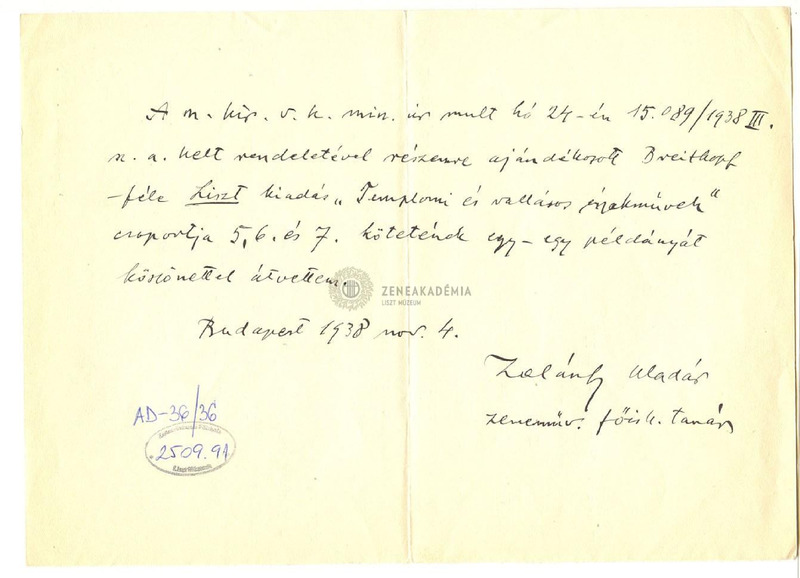 A m. kir. v. k. min. úr mult hó 24-én 15.089/1938 III.
n. a. kelt rendeletével részemre ajándékozott Breitkopf
-féle Liszt kiadás „Templomi és vallásos énekművek"
csoportja 5, 6. és 7. kötetének egy-egy példányát
köszönettel átvettem.
ZENEAKADÉMIA
LISZT MÚZEUM
Budapest 1938 nov. 4.
Zalánfy Aladár
zeneműv. főisk. tanár
AD-36/36
2509.91